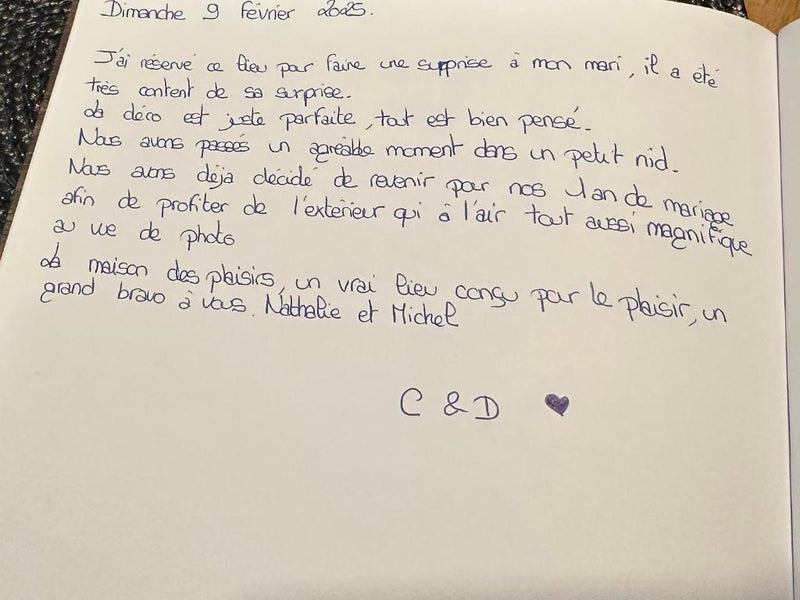 Dimanche 9 février 2025.
J'ai réservé ce lieu par faire une supprise à mon mari, il a été
très content de sa surprise.
La déco est juste parfaite, tout est bien pensé.
Nous avons passés un agréable moment dans un petit nid.
Nous avons déja décidé de revenir pour nos 1 an de mariage
afin de profiter de l'extérieur qui à l'air tout aussi magnifique
au vue de photo
La maison des plaisirs, un vrai lieu conçu par le plaisir, un
grand bravo à vous. Nathalie et Michel
C & D ♥